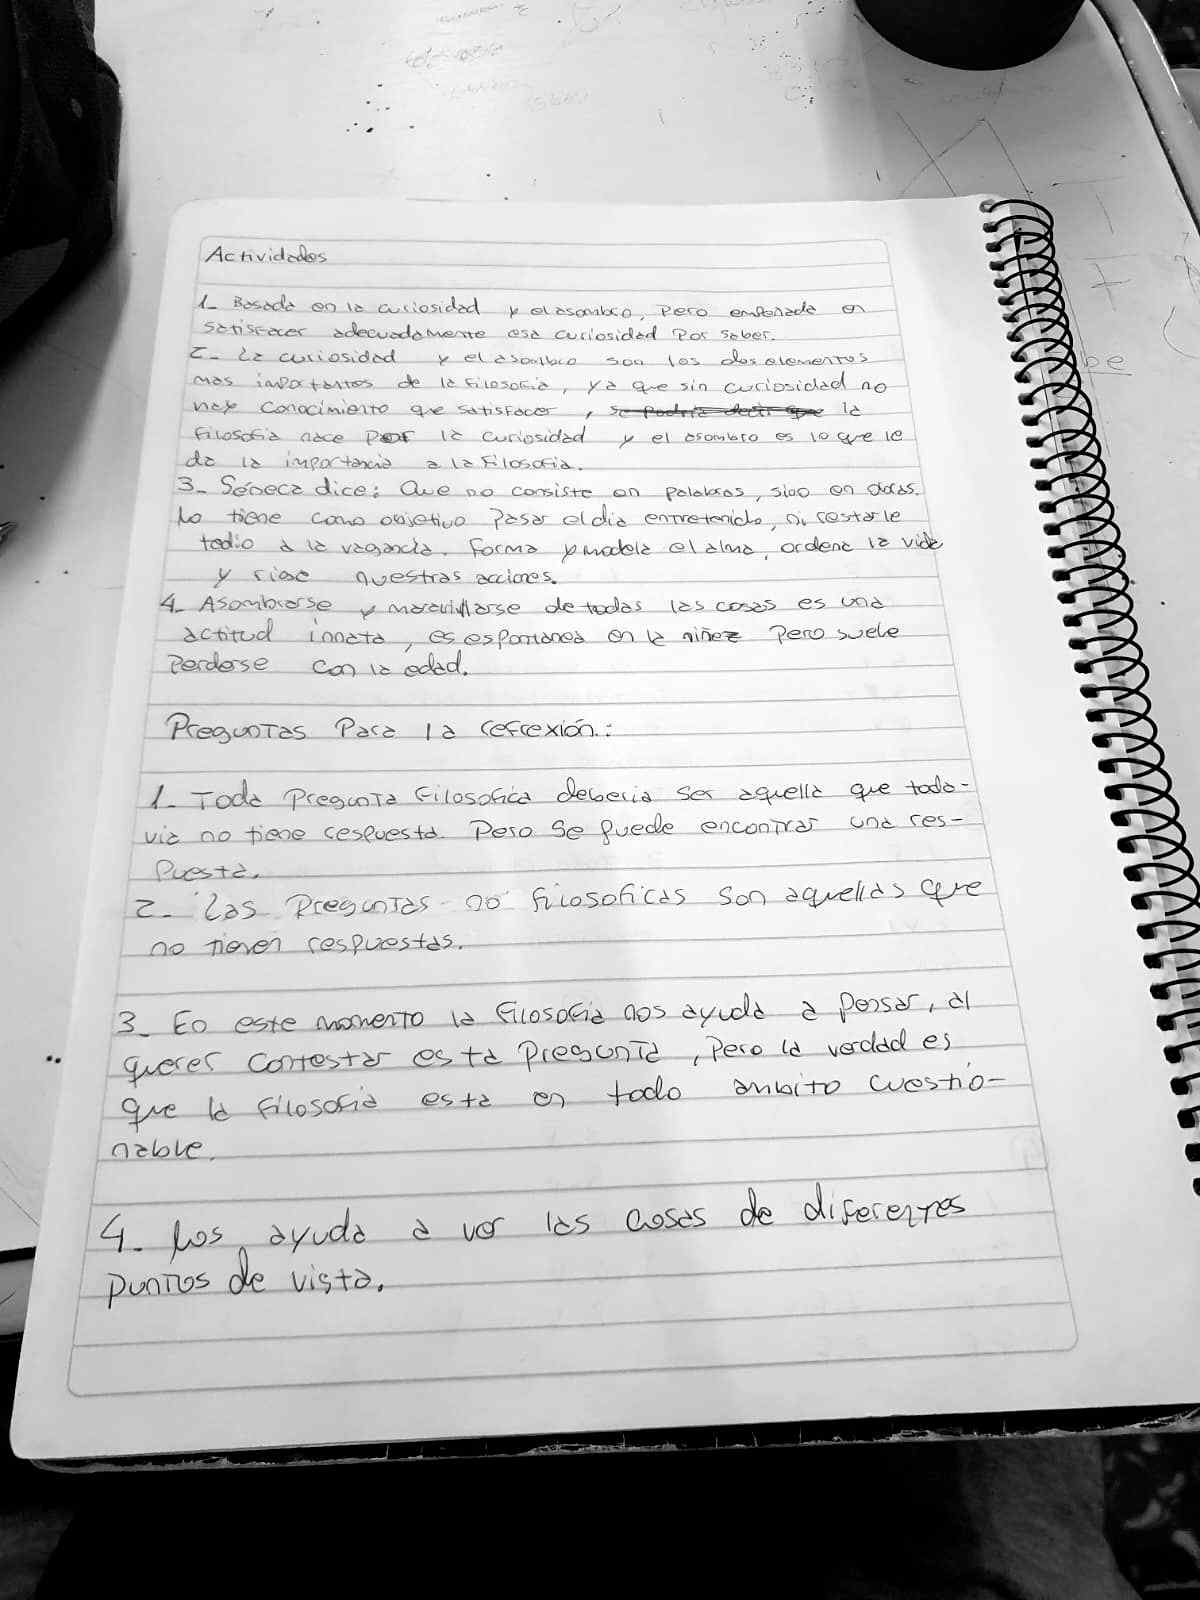 Actividades
1_ Basada en la curiosidad y el asombro, pero empeñada en
satisfacer adecuadamente esa curiosidad por saber.
2_ La curiosidad y el asombro son los dos elementos
mas importantes de la filosofia, ya que sin curiosidad no
hay conocimiento que satisfacer, se podria decir que la
filosofia nace por la curiosidad y el asombro es lo que le
da la importancia a la filosofia.
3_ Séneca dice: Que no consiste en palabras, sino en obras.
No tiene como objetivo pasar el dia entretenido, ni restarle
tedio a la vagancia. Forma y modela el alma, ordena la vida
y rige nuestras acciones.
4_ Asombrarse y maravillarse de todas las cosas es una
actitud innata, es espontanea en la niñez pero suele
perderse con la edad.
Preguntas para la refrexión:
1_ Toda pregunta filosofica deberia ser aquella que toda-
via no tiene respuesta. Pero se puede encontrar una res-
puesta.
2_ Las preguntas no filosoficas son aquellas que
no tienen respuestas.
3_ En este momento la filosofia nos ayuda a pensar, al
querer contestar esta pregunta, pero la verdad es
que la filosofia esta en todo ambito cuestio-
nable.
4_ Nos ayuda a ver las cosas de diferentes
puntos de vista.